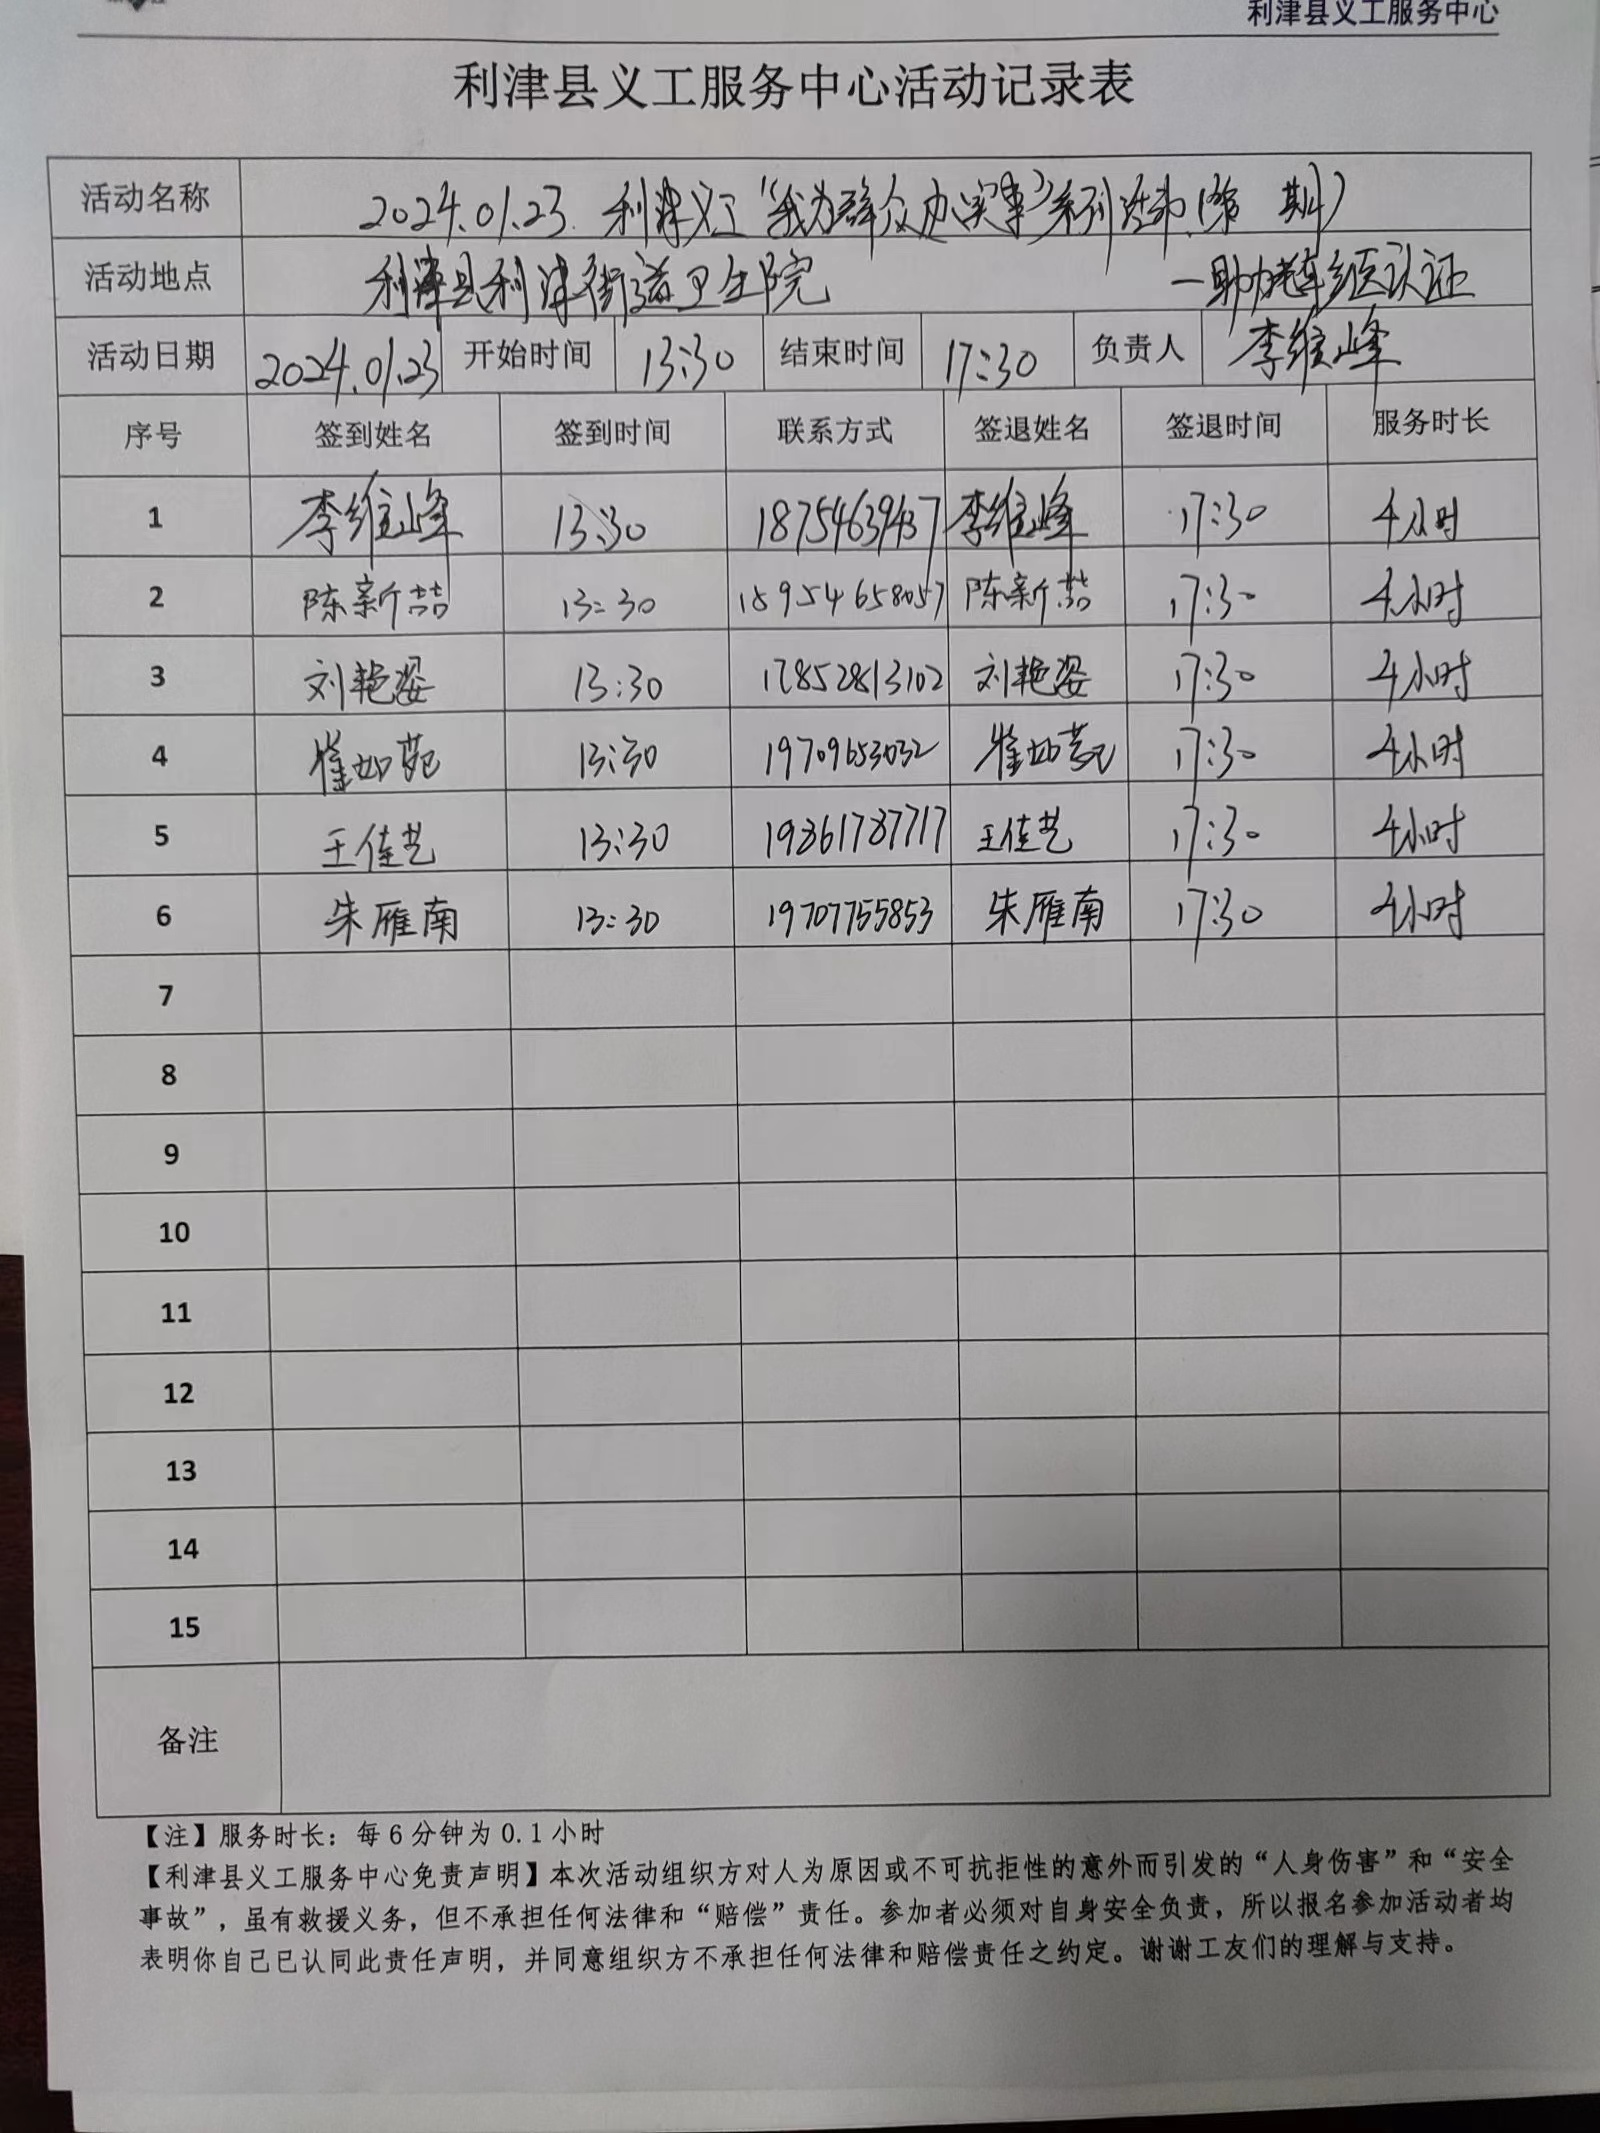 利津县义工服务中心
利津县义工服务中心活动记录表
活动名称 2024.01.23. 利津义工“我为群众办实事”系列活动(第 期)
活动地点 利津县利津街道卫生院 一助力老年乡医认证
活动日期 2024.01.23 开始时间 13:30 结束时间 17:30 负责人 李维峰
序号 签到姓名 签到时间 联系方式 签退姓名 签退时间 服务时长
1 李维峰 13:30 18754639437 李维峰 17:30 4小时
2 陈新喆 13:30 15954658057 陈新喆 17:30 4小时
3 刘艳姿 13:30 17852813102 刘艳姿 17:30 4小时
4 崔如苑 13:30 19709653032 崔如苑 17:30 4小时
5 王佳艺 13:30 19861787717 王佳艺 17:30 4小时
6 朱雁南 13:30 19707755853 朱雁南 17:30 4小时
7
8
9
10
11
12
13
14
15
备注
【注】服务时长：每6分钟为0.1小时
【利津县义工服务中心免责声明】本次活动组织方对人为原因或不可抗拒性的意外而引发的“人身伤害”和“安全
事故”，虽有救援义务，但不承担任何法律和“赔偿”责任。参加者必须对自身安全负责，所以报名参加活动者均
表明你自己已认同此责任声明，并同意组织方不承担任何法律和赔偿责任之约定。谢谢工友们的理解与支持。